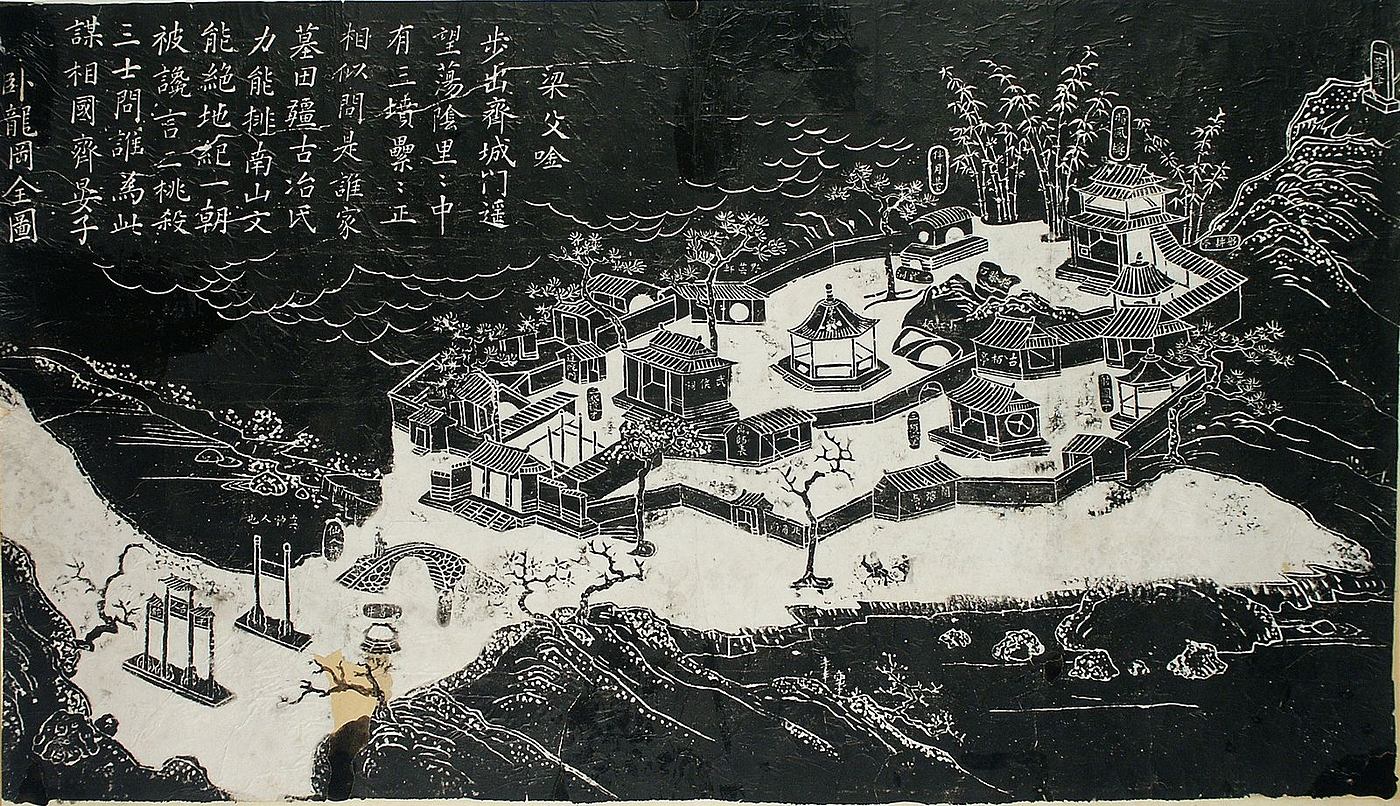 梁父唫
步出齊城門遥
望蕩陰里〻中
有三墳纍〻正
相似問是誰家
墓田疆古冶氏
力能排南山文
能絕地紀一朝
被讒言二桃殺
三士問誰為此
謀相國齊晏子
臥龍岡全圖
武侯祠
古柏亭